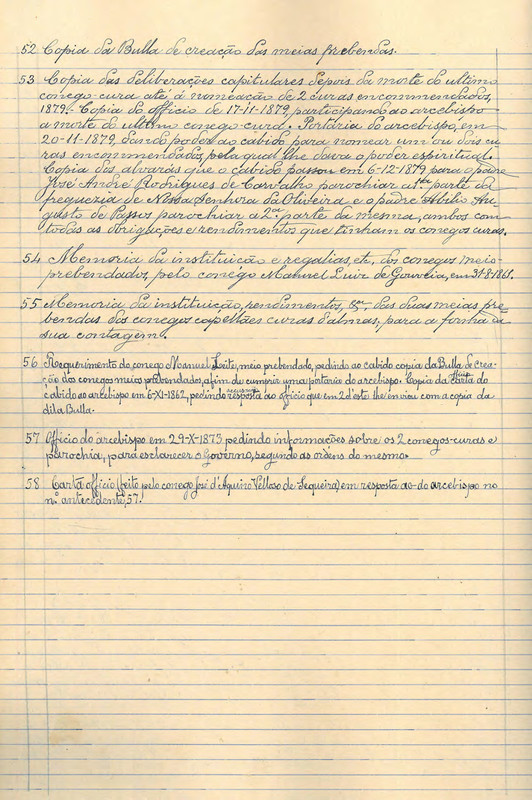 52 Copia da Bulla de creação das meias prebendas.
53 Copia das deliberações capitulares depois da morte do ultimo
conego-cura até á nomeação de 2 curas encommendados,
1879.- Copia do officio de 17-11-1879, participando ao arcebispo
a morte do ultimo conego-cura. Portaria do arcebispo, em
20-11-1879, dando poder ao cabido para nomear um ou dois cu-
ras encommendados, pela qual lhe dava o poder espiritual.
Copia dos alvarás que o cabido passou em 6-12-1879 para o padre
José André Rodrigues de Carvalho parochiar a 1ª parte da
freguezia de Nossa Senhora da Oliveira e o padre Abilio Au-
gusto de Passos parochiar a 2ª parte da mesma, ambos com
todas as obrigações e rendimentos que tinham os conegos curas.
54 Memoria da instituição e regalias, etc, dos conegos meio-
prebendados, pelo conego Manuel Luiz de Gouveia, em 31-8-1861.
55 Memoria da instituição, rendimentos, &, das duas meias pre-
bendas dos conegos capellães curas d'almas, para a forma da
sua contagem.
56 Requerimento do conego Manuel Leite, meio prebendado, pedindo ao cabido copia da Bulla de crea-
ção dos conegos meias prebendados, afim de cumprir uma portaria do arcebispo. Copia da carta officio do
cabido ao arcebispo em 6-XI-1862, pedindo resposta ao officio que em 2 d'este lhe enviou com a copia da
dita Bulla.
57 Officio do arcebispo em 29-X-1873 pedindo informações sobre os 2 conegos-curas e
parochia, para esclarecer o Governo, segundo as ordens do mesmo.
58 Carta officio (feito pelo conego José d'Aquino Velloso de Sequeira) em resposta ao do arcebispo no
nº antecedente, 57.